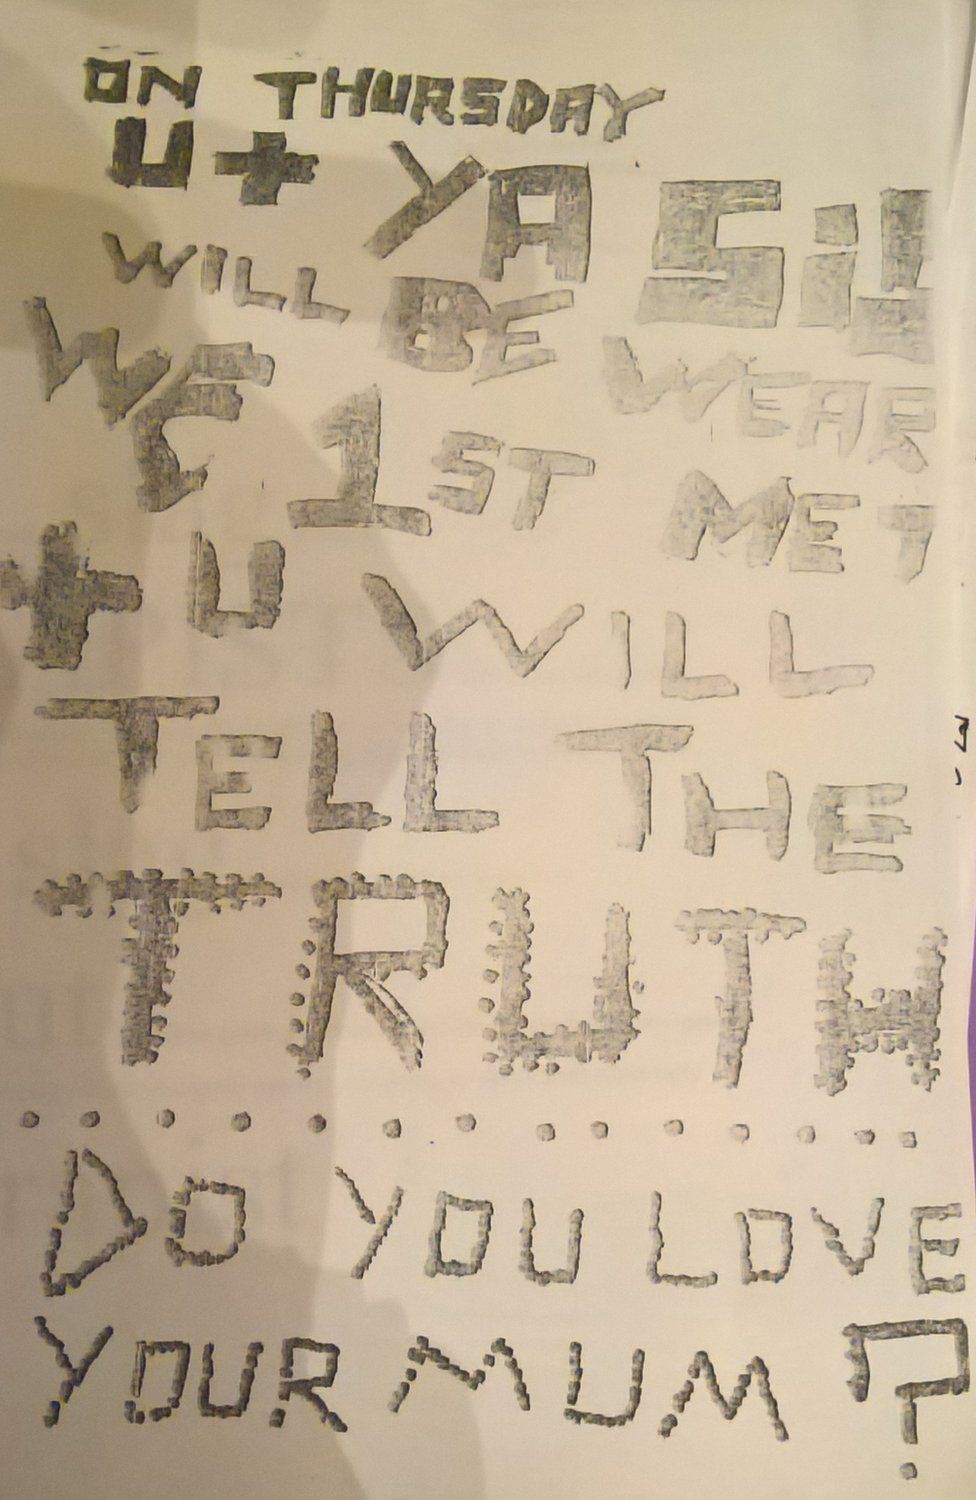 ON THURSDAY
U + YA SiS
WILL BE WEAR
WE 1ST MET
+ U WILL
TELL THE
TRUTH
..............
DO YOU LOVE
YOUR MUM ?